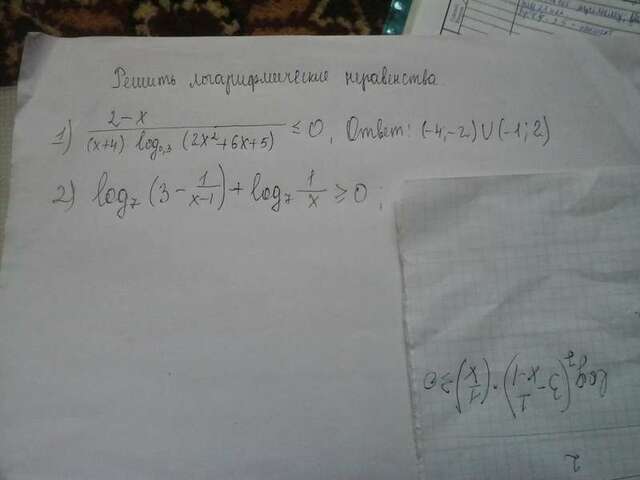 Решить логарифмические неравенства.
1) (2-x)/((x+4) log₀,₃ (2x²+6x+5)) ≤ 0, Ответ: (-4;-2) ∪ (-1; 2)
2) log₇ (3 - 1/(x-1)) + log₇ 1/x ≥ 0;
log₇ (3 - 1/(x-1)) · (1/x) ≥ 0